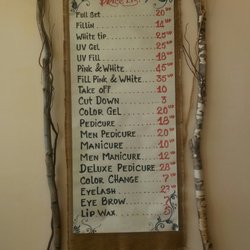 Price List
Full Set 20
Fillin 14
White tip 25
UV Gel 25
UV Fill 18
Pink & White 45
Fill Pink & White 35
Take off 10
Cut Down 3
Color Gel 20
Pedicure 18
Men Pedicure 20
Manicure 10
Men Manicure 12
Deluxe Pedicure 28
Color Change 7
Eyelash
Eye Brow 7
Lip Wax 5